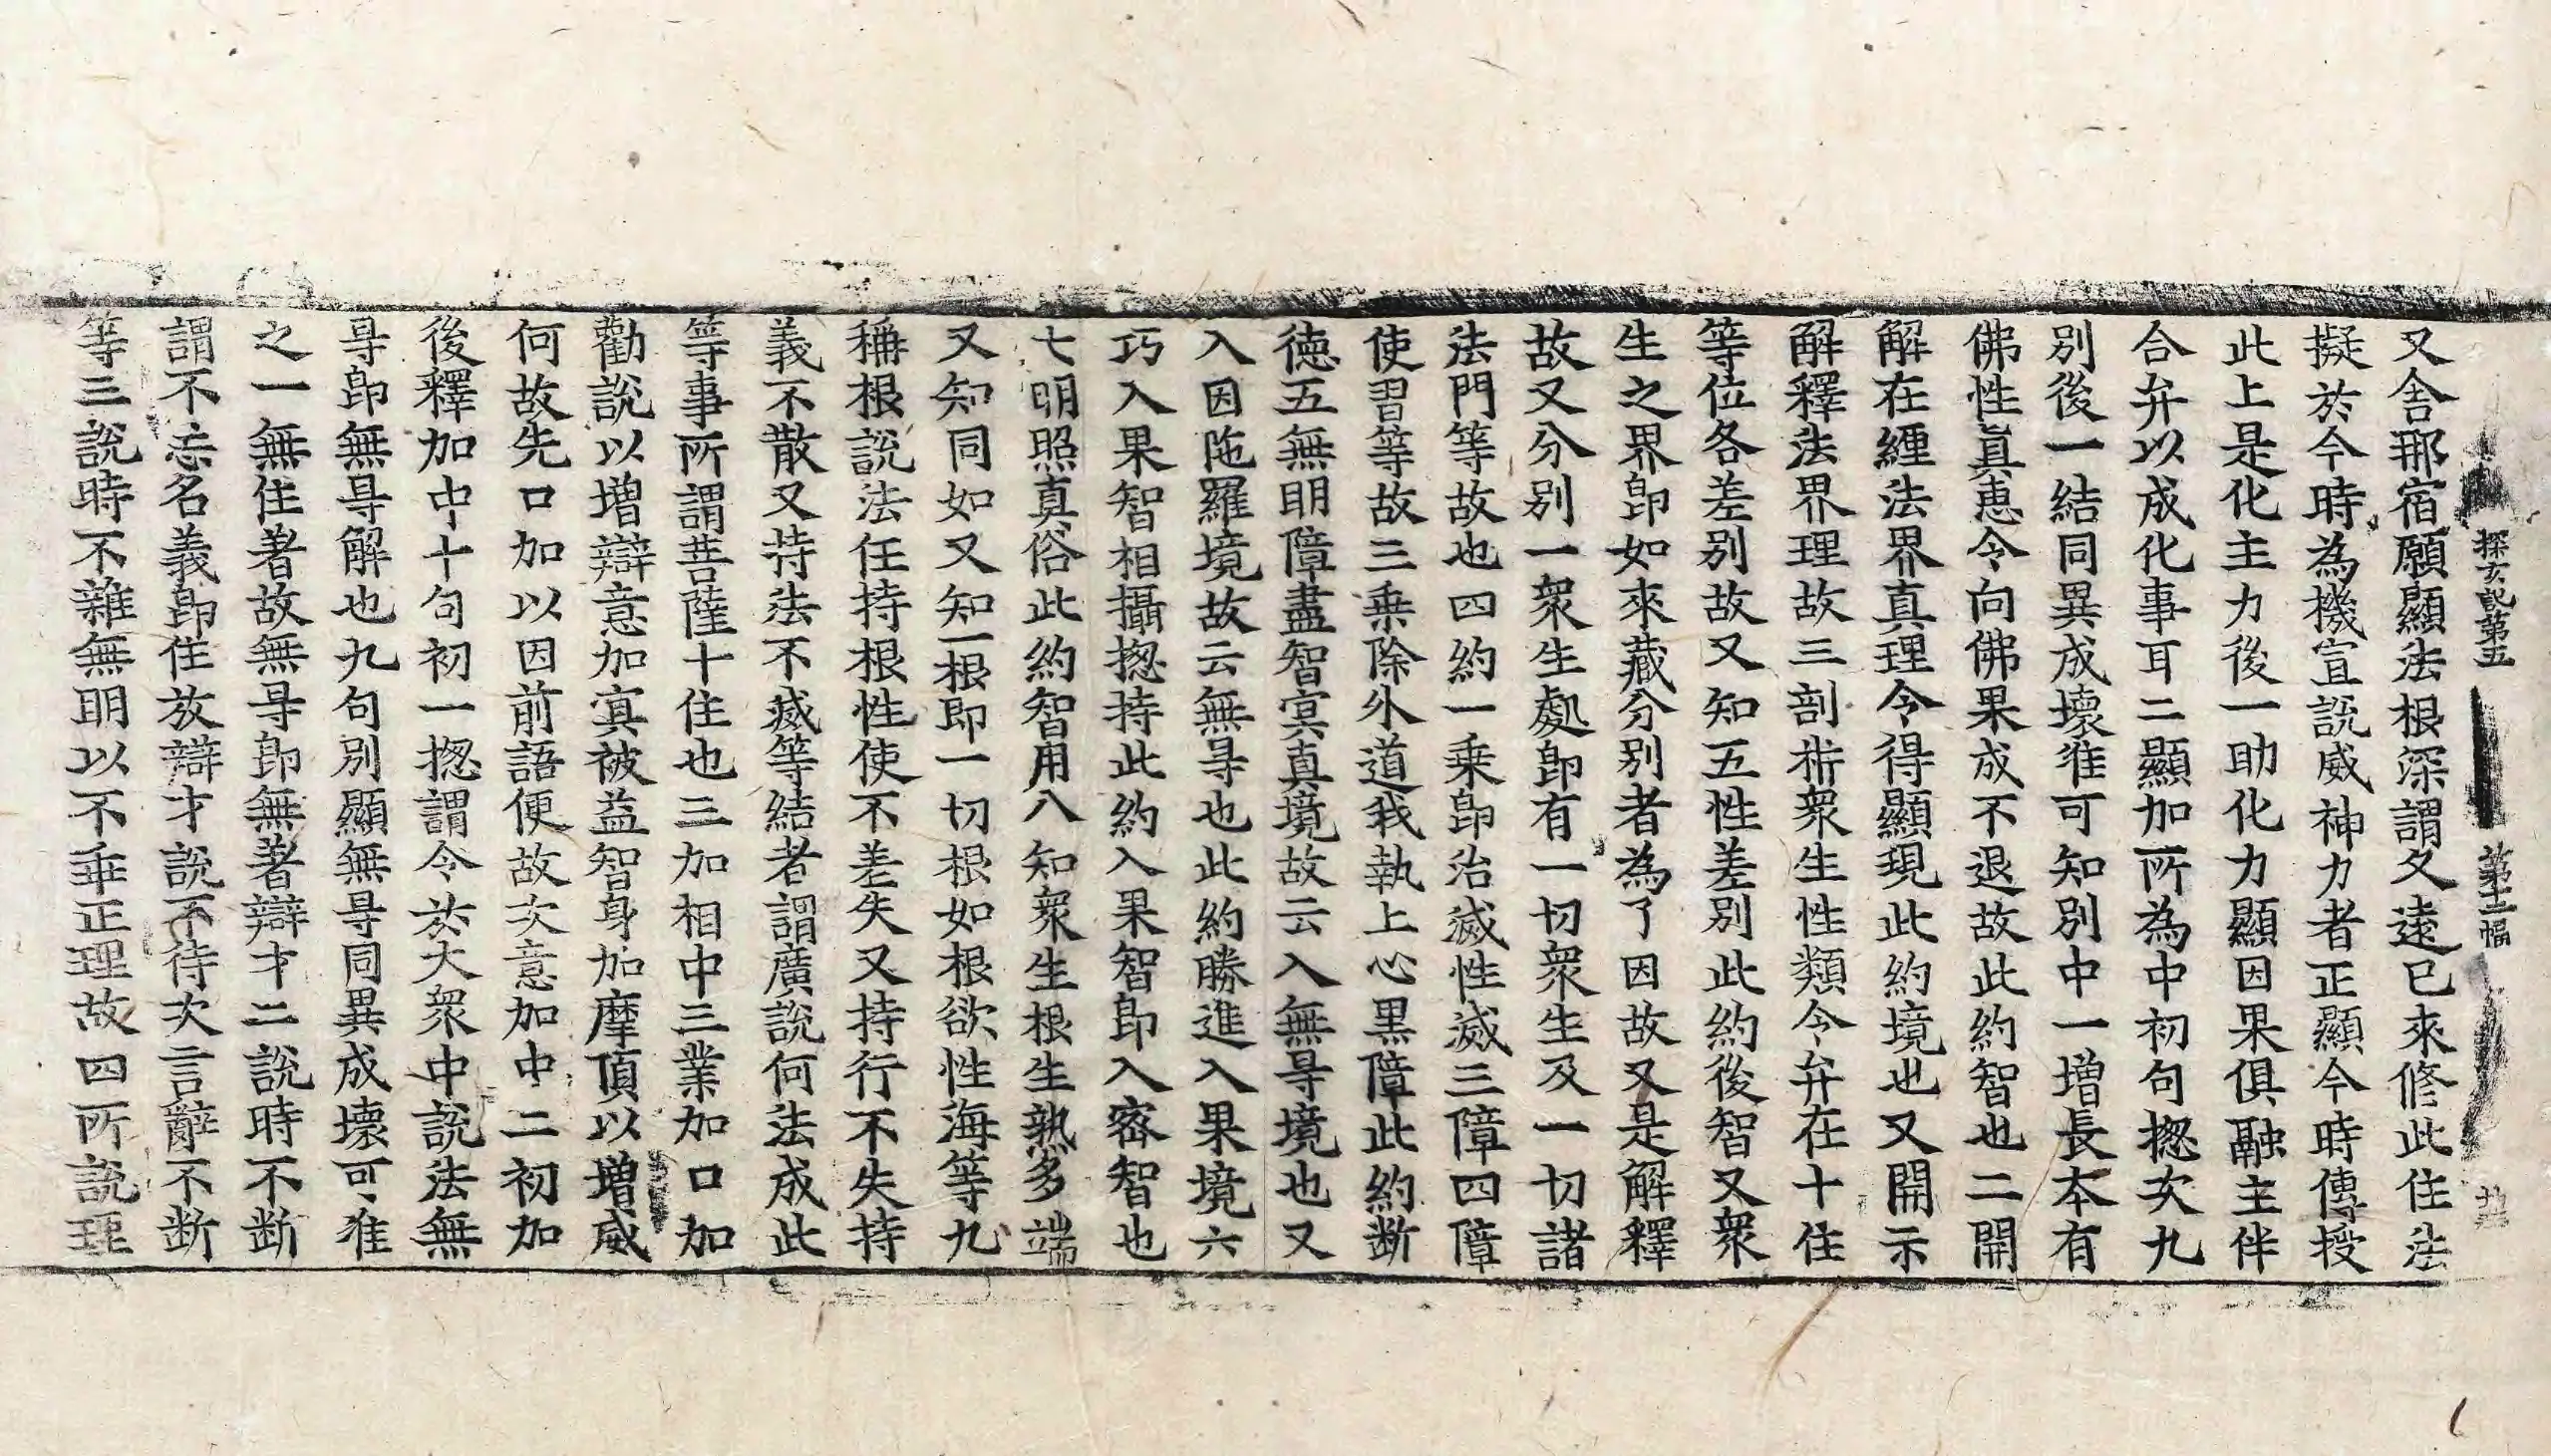 探玄記第五 第十二幅
又舍那宿願顯法根深謂久遠已來修此住法
擬於今時為機宣説威神力者正顯今時傳授
此上是化主力後一助化力顯因果俱融主伴
合弁以成化事耳二顯加所為中初句揔次九
别後一結同異成壞准可知别中一増長本有
佛性真恵令向佛果成不退故此約智也二開
解在纏法界真理令得顯現此約境也又開示
解釋法界理故三剖析衆生性類令弁在十住
等位各差别故又知五性差别此約後智又衆
生之界即如來藏分别者為了因故又是解釋
故又分别一衆生處即有一切衆生及一切諸
法門等故也四約一乗即治滅性滅三障四障
使習等故三乗除外道我執上心黒障此約断
徳五無明障盡智冥真境故云入無㝵境也又
入因陁羅境故云無㝵也此約勝進入果境六
巧入果智相攝揔持此約入果智即入密智也
七明照真俗此約智用八知衆生根生熟多端
又知同如又知一根即一切根如根欲性海等九
稱根説法任持根性使不差失又持行不失持
義不散又持法不滅等結者謂廣説何法成此
等事所謂菩薩十住也三加相中三業加口加
勸説以増辯意加冥被益智身加摩頂以増威
何故先口加以因前語便故次意加中二初加
後釋加中十句初一揔謂令於大衆中説法無
㝵即無㝵解也九句别顯無㝵同異成壞可准
之一無住著故無㝵即無著辯才二説時不断
謂不忘名義即住放辯才説不待次言辭不断
等三説時不雜無明以不乖正理故四所説理